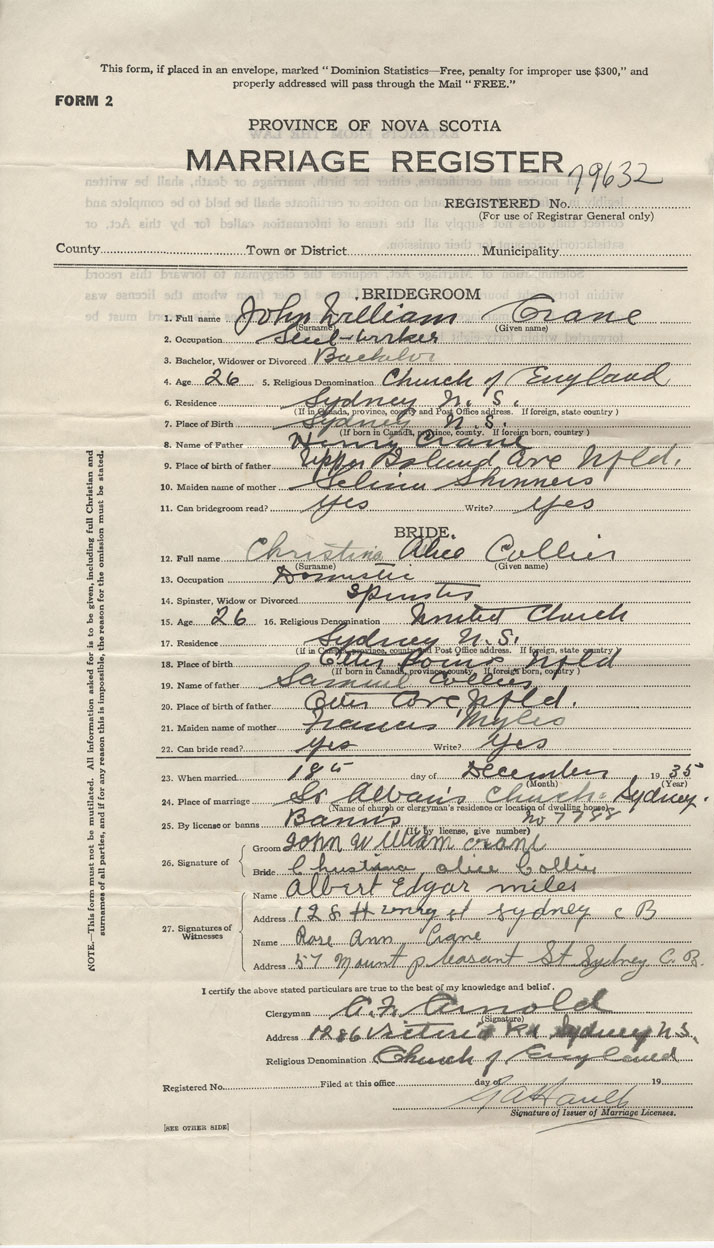 This form, if placed in an envelope, marked "Dominion Statistics—Free, penalty for improper use $300," and
properly addressed will pass through the Mail "FREE."
FORM 2
PROVINCE OF NOVA SCOTIA
MARRIAGE REGISTER
79632
REGISTERED No.
(For use of Registrar General only)
County Town or District Municipality
BRIDEGROOM
1. Full name John William Crane
(Surname) (Given name)
2. Occupation Steel-worker
3. Bachelor, Widower or Divorced Bachelor
4. Age 26 5. Religious Denomination Church of England
6. Residence Sydney N. S.
(If in Canada, province, county and Post Office address. If foreign, state country)
7. Place of Birth Sydney N. S.
(If born in Canada, province, county. If foreign born, country)
8. Name of Father Henry Crane
9. Place of birth of father Upper Island Cove Nfld.
10. Maiden name of mother Selina Skinners
11. Can bridegroom read? Yes Write? Yes
BRIDE.
12. Full name Christina Alice Collier
(Surname) (Given name)
13. Occupation Domestic
14. Spinster, Widow or Divorced Spinster
15. Age 26 16. Religious Denomination United Church
17. Residence Sydney N. S.
(If in Canada, province, county and Post Office address. If foreign, state country)
18. Place of birth Nfld
(If born in Canada, province, county. If foreign born, country)
19. Name of father Samuel Collier
20. Place of birth of father Cove, Nfld.
21. Maiden name of mother Frances Myles
22. Can bride read? Yes Write? Yes
23. When married 18th day of December 1935
(Month) (Year)
24. Place of marriage St Alban's Church Sydney.
(Name of church or clergyman's residence or location of dwelling house)
25. By license or banns Banns no 7788
(If by license, give number)
26. Signature of Groom John William Crane
Bride Christina alice Collier
27. Signatures of Witnesses
Name Albert Edgar miles
Address 128 Henry st Sydney C B
Name Rose Ann Crane
Address 57 Mount pleasant St Sydney C. B.
I certify the above stated particulars are true to the best of my knowledge and belief.
Clergyman Arnold
(Signature)
Address 1286 Victoria Rd Sydney N. S.
Religious Denomination Church of England
Registered No. Filed at this office day of 19
Signature of Issuer of Marriage Licenses.
[SEE OTHER SIDE]
NOTE.—This form must not be mutilated. All information asked for is to be given, including full Christian and
surnames of all parties, and if for any reason this is impossible, the reason for the omission must be stated.